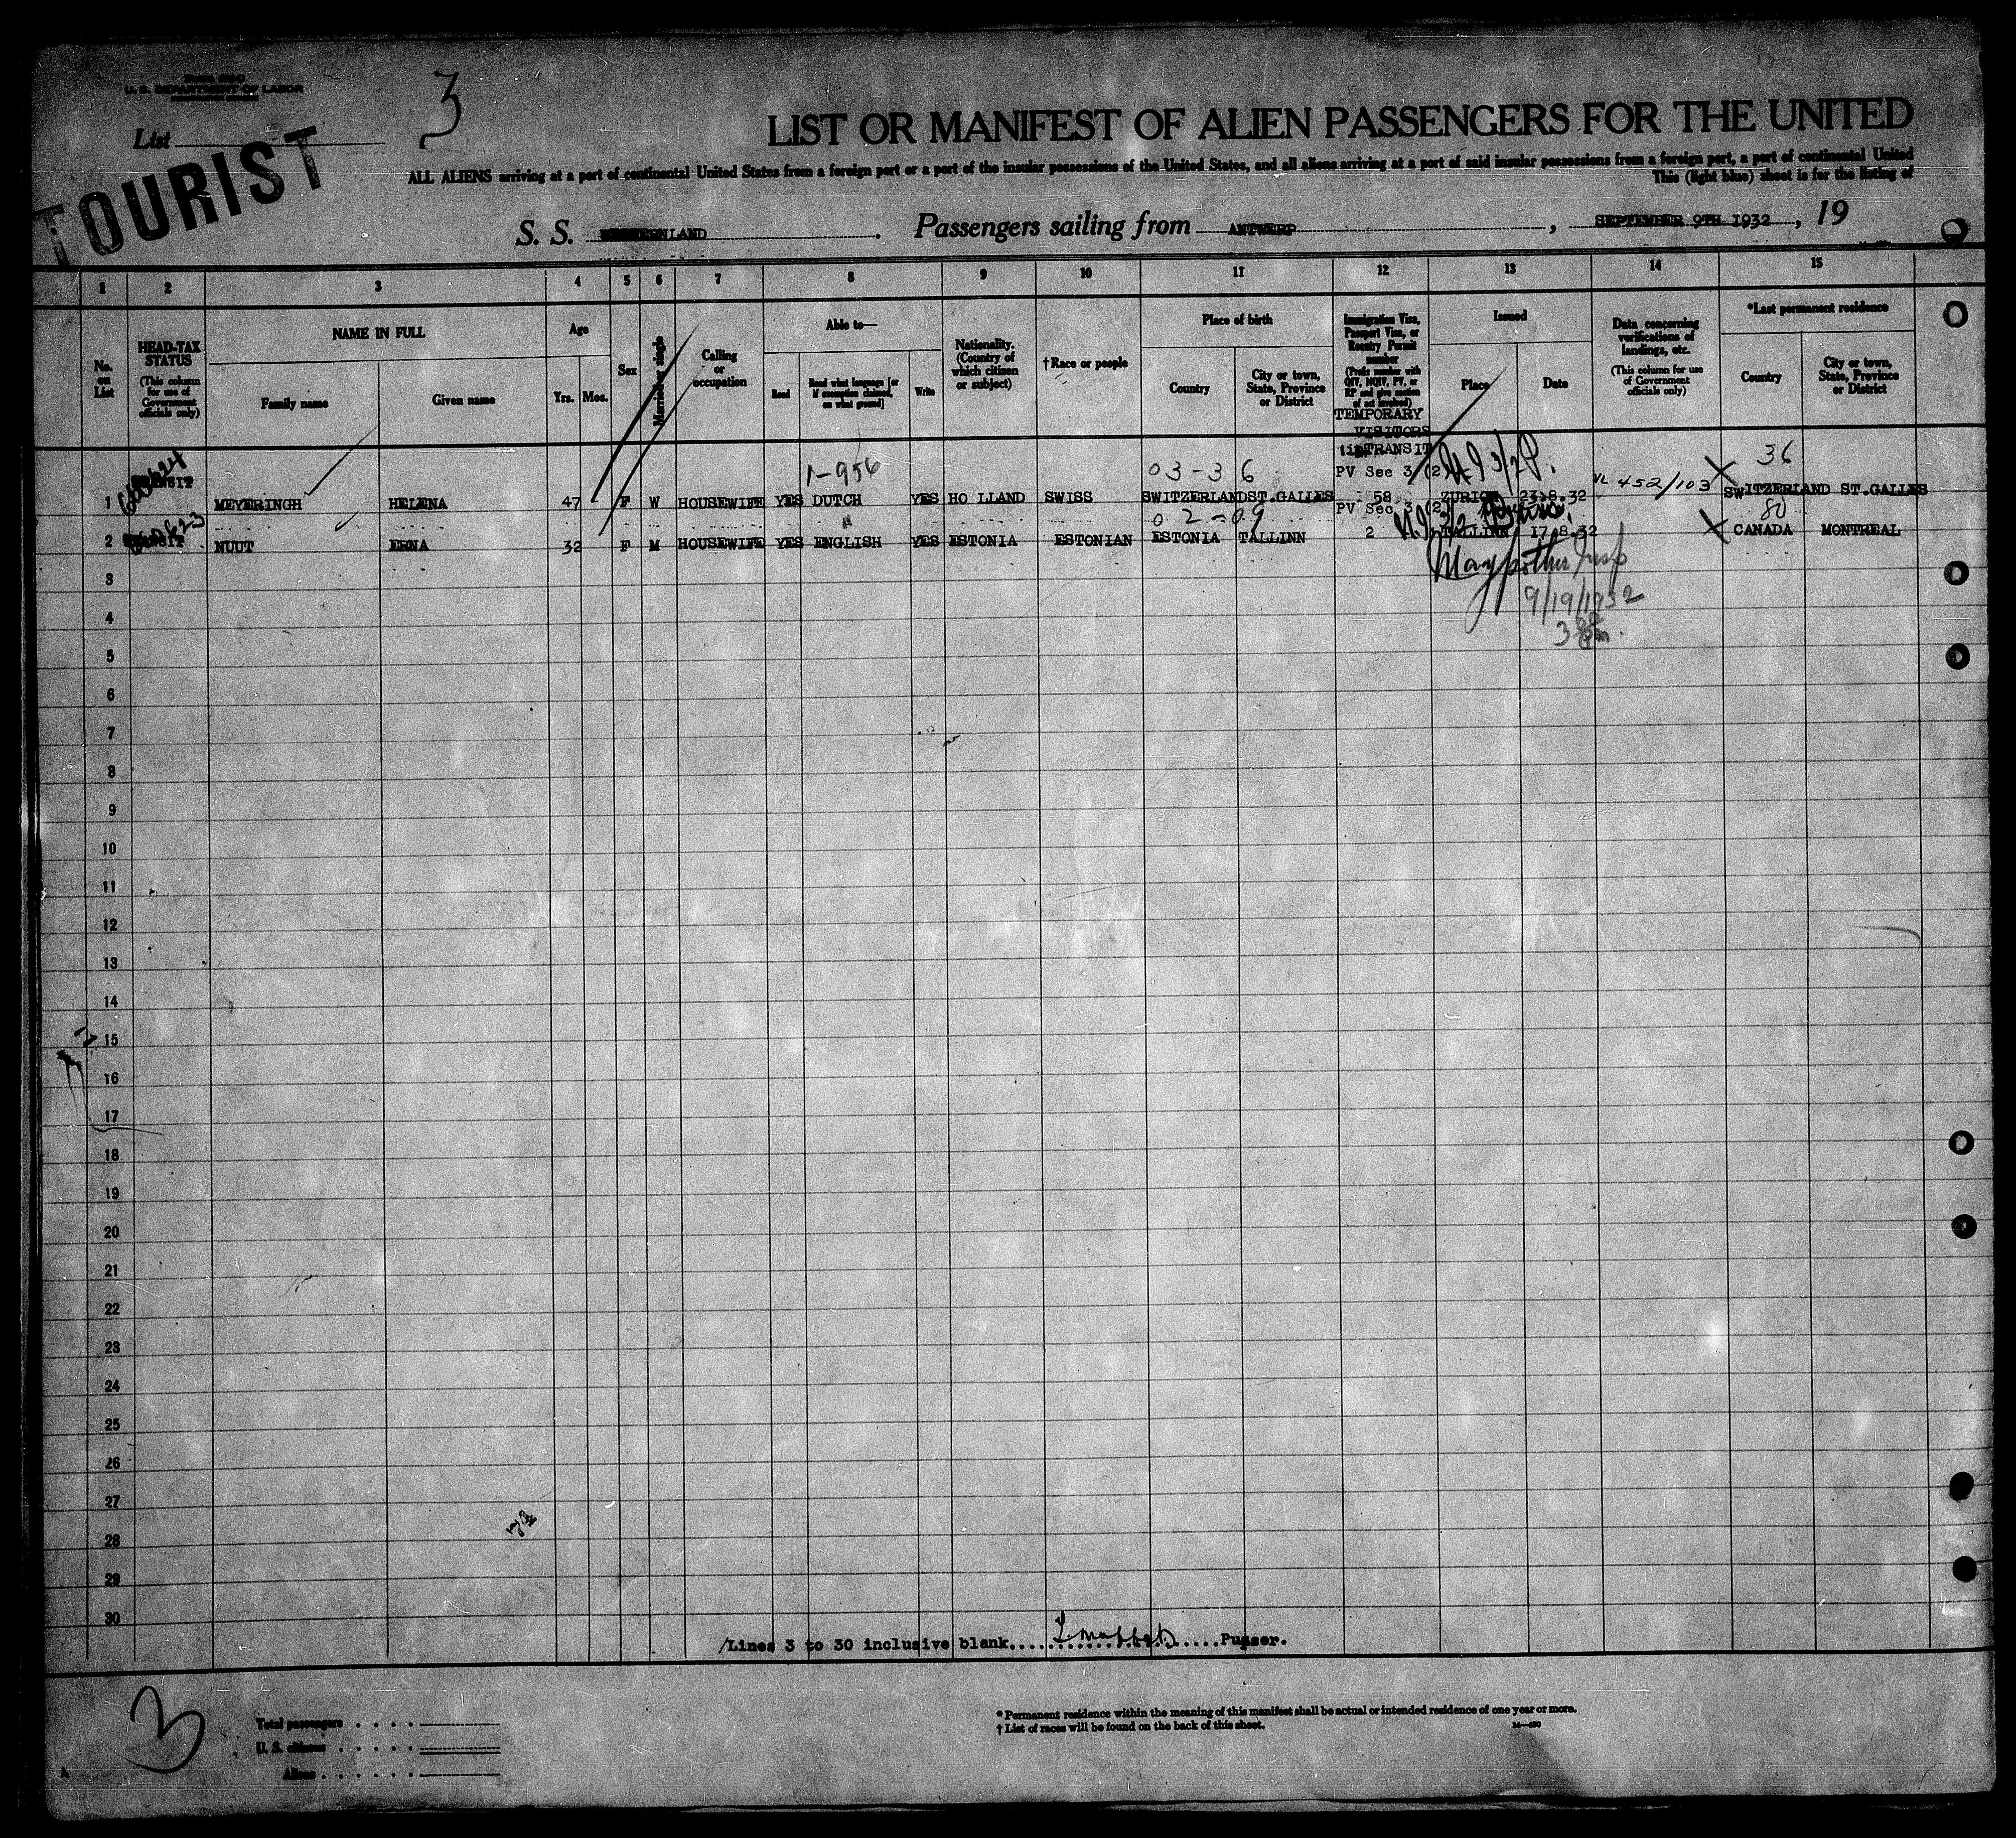 U. S. DEPARTMENT OF LABOR
3
List
TOURIST
LIST OR MANIFEST OF ALIEN PASSENGERS FOR THE UNITED
ALL ALIENS arriving at a port of continental United States from a foreign port or a port of the insular possessions of the United States, and all aliens arriving at a port of said insular possessions from a foreign port, a port of continental United
This (light blue) sheet is for the listing of
S. S. Passengers sailing from ANTWERP, SEPTEMBER 9TH 1932, 19
1 2 3 4 5 6 7 8 9 10 11 12 13 14 15
No. on List
HEAD-TAX STATUS
(This column for use of Government officials only)
NAME IN FULL
Family name
Given name
Age
Yrs. Mos.
Sex
Married or single
Calling or occupation
Able to—
Read
Read what language [or if exemption claimed, on what ground]
Write
Nationality. (Country of which citizen or subject)
†Race or people
Place of birth
Country
City or town, State, Province or District
Immigration Visa, Passport Visa, or Reentry Permit number
(Prefix number with QIV, NQIV, PV, or RP and give section of act involved)
TEMPORARY
VISITORS
TRANSIT
Issued
Place
Date
Data concerning verifications of landings, etc.
(This column for use of Government officials only)
*Last permanent residence
Country
City or town, State, Province or District
1-956
03-36
PV Sec 3 (2
36
1 MEYERINGH HELENA 47 F W HOUSEWIFE YES DUTCH YES HO LLAND SWISS SWITZERLAND ST.GALLES 58 ZURICH 23.8.32 VL 452/103 SWITZERLAND ST.GALLES
02-09
PV Sec 3 (2)
80
2 NUUT ERNA 32 F M HOUSEWIFE YES ENGLISH YES ESTONIA ESTONIAN ESTONIA TALLINN 2 TALLINN 17.8.32 CANADA MONTREAL
9/19/1932
3
4
5
6
7
8
9
10
11
12
13
14
15
16
17
18
19
20
21
22
23
24
25
26
27
28
29
30
/Lines 3 to 30 inclusive blank..........Purser.
3
Total passengers
U. S. citizens
Aliens
* Permanent residence within the meaning of this manifest shall be actual or intended residence of one year or more.
† List of races will be found on the back of this sheet.